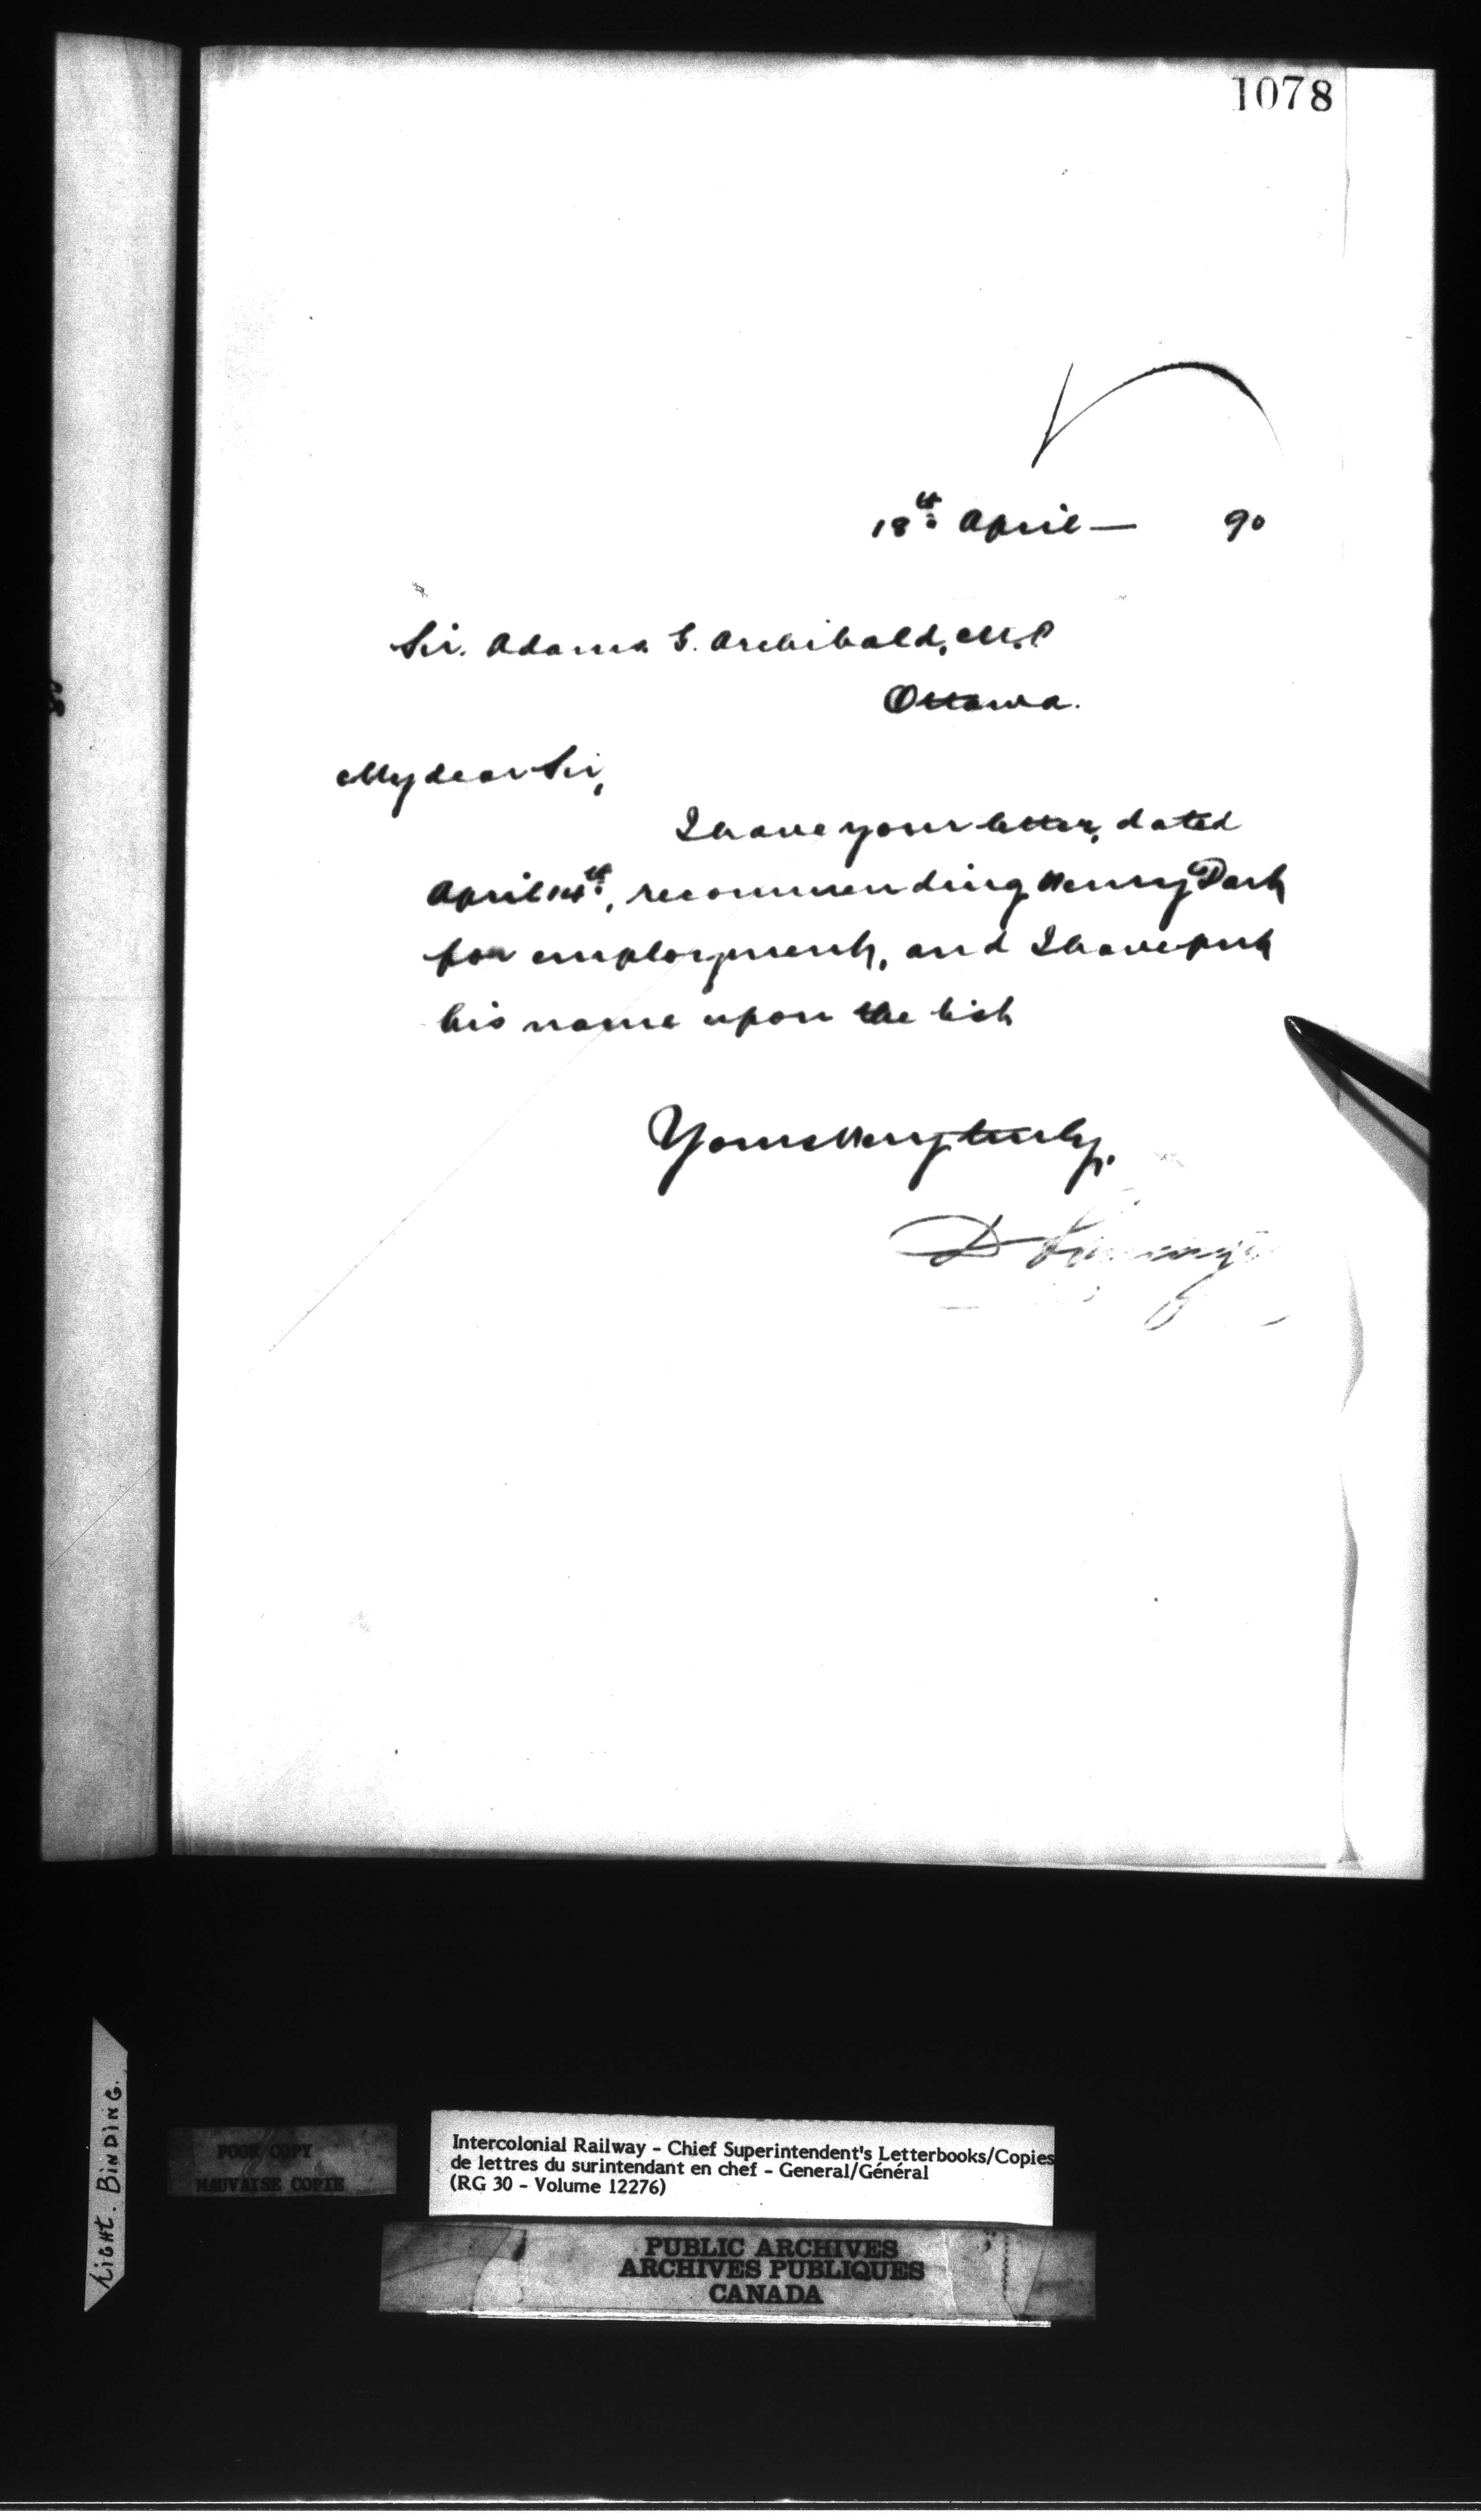 1078
18th April — 90
Sir. Adams G. Archibald, M.P
Ottawa.
My dear Sir,
I have your letter, dated
April 14th, recommending Henry
for employment, and I have put
his name upon the list
Yours very truly,
D
LIGHT. BINDING.
POOR COPY
MAUVAISE COPIE
Intercolonial Railway - Chief Superintendent's Letterbooks/Copies
de lettres du surintendant en chef - General/Général
(RG 30 - Volume 12276)
PUBLIC ARCHIVES
ARCHIVES PUBLIQUES
CANADA